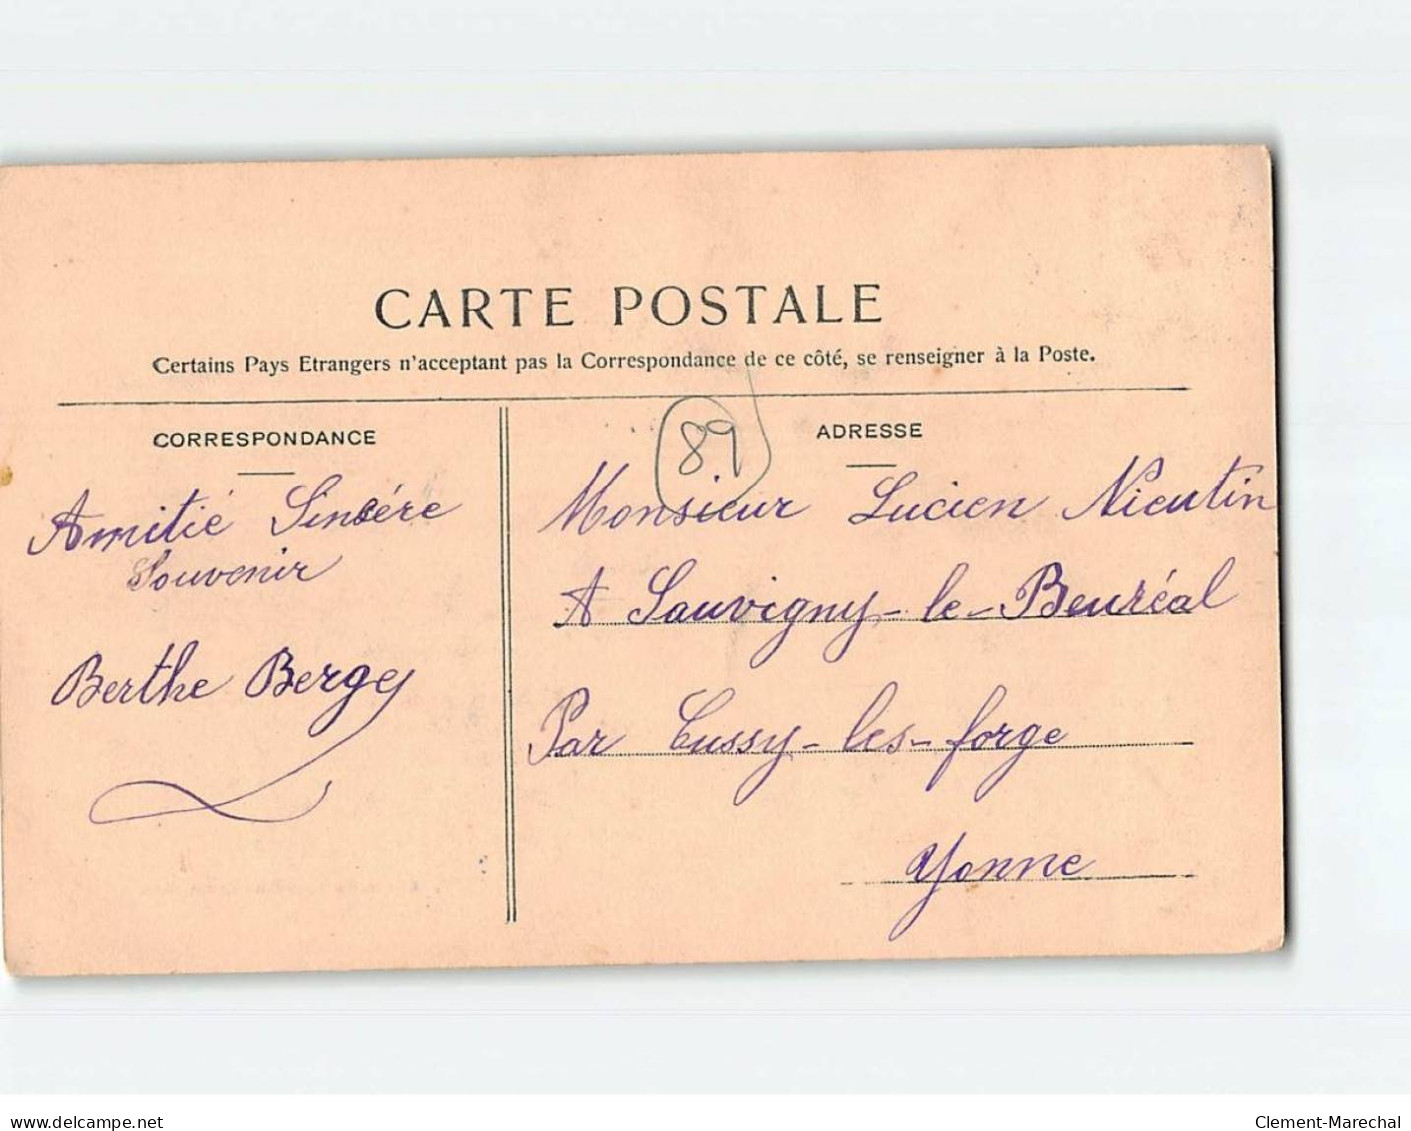 CARTE POSTALE
Certains Pays Etrangers n'acceptant pas la Correspondance de ce côté, se renseigner à la Poste.
CORRESPONDANCE
Amitié Sincère
Souvenir
Berthe Bergey
89
ADRESSE
Monsieur Lucien Nieutin
A Sauvigny-le-Beuréal
Par Cussy-les-forge
Yonne
www.delcampe.net
Clement-Marechal